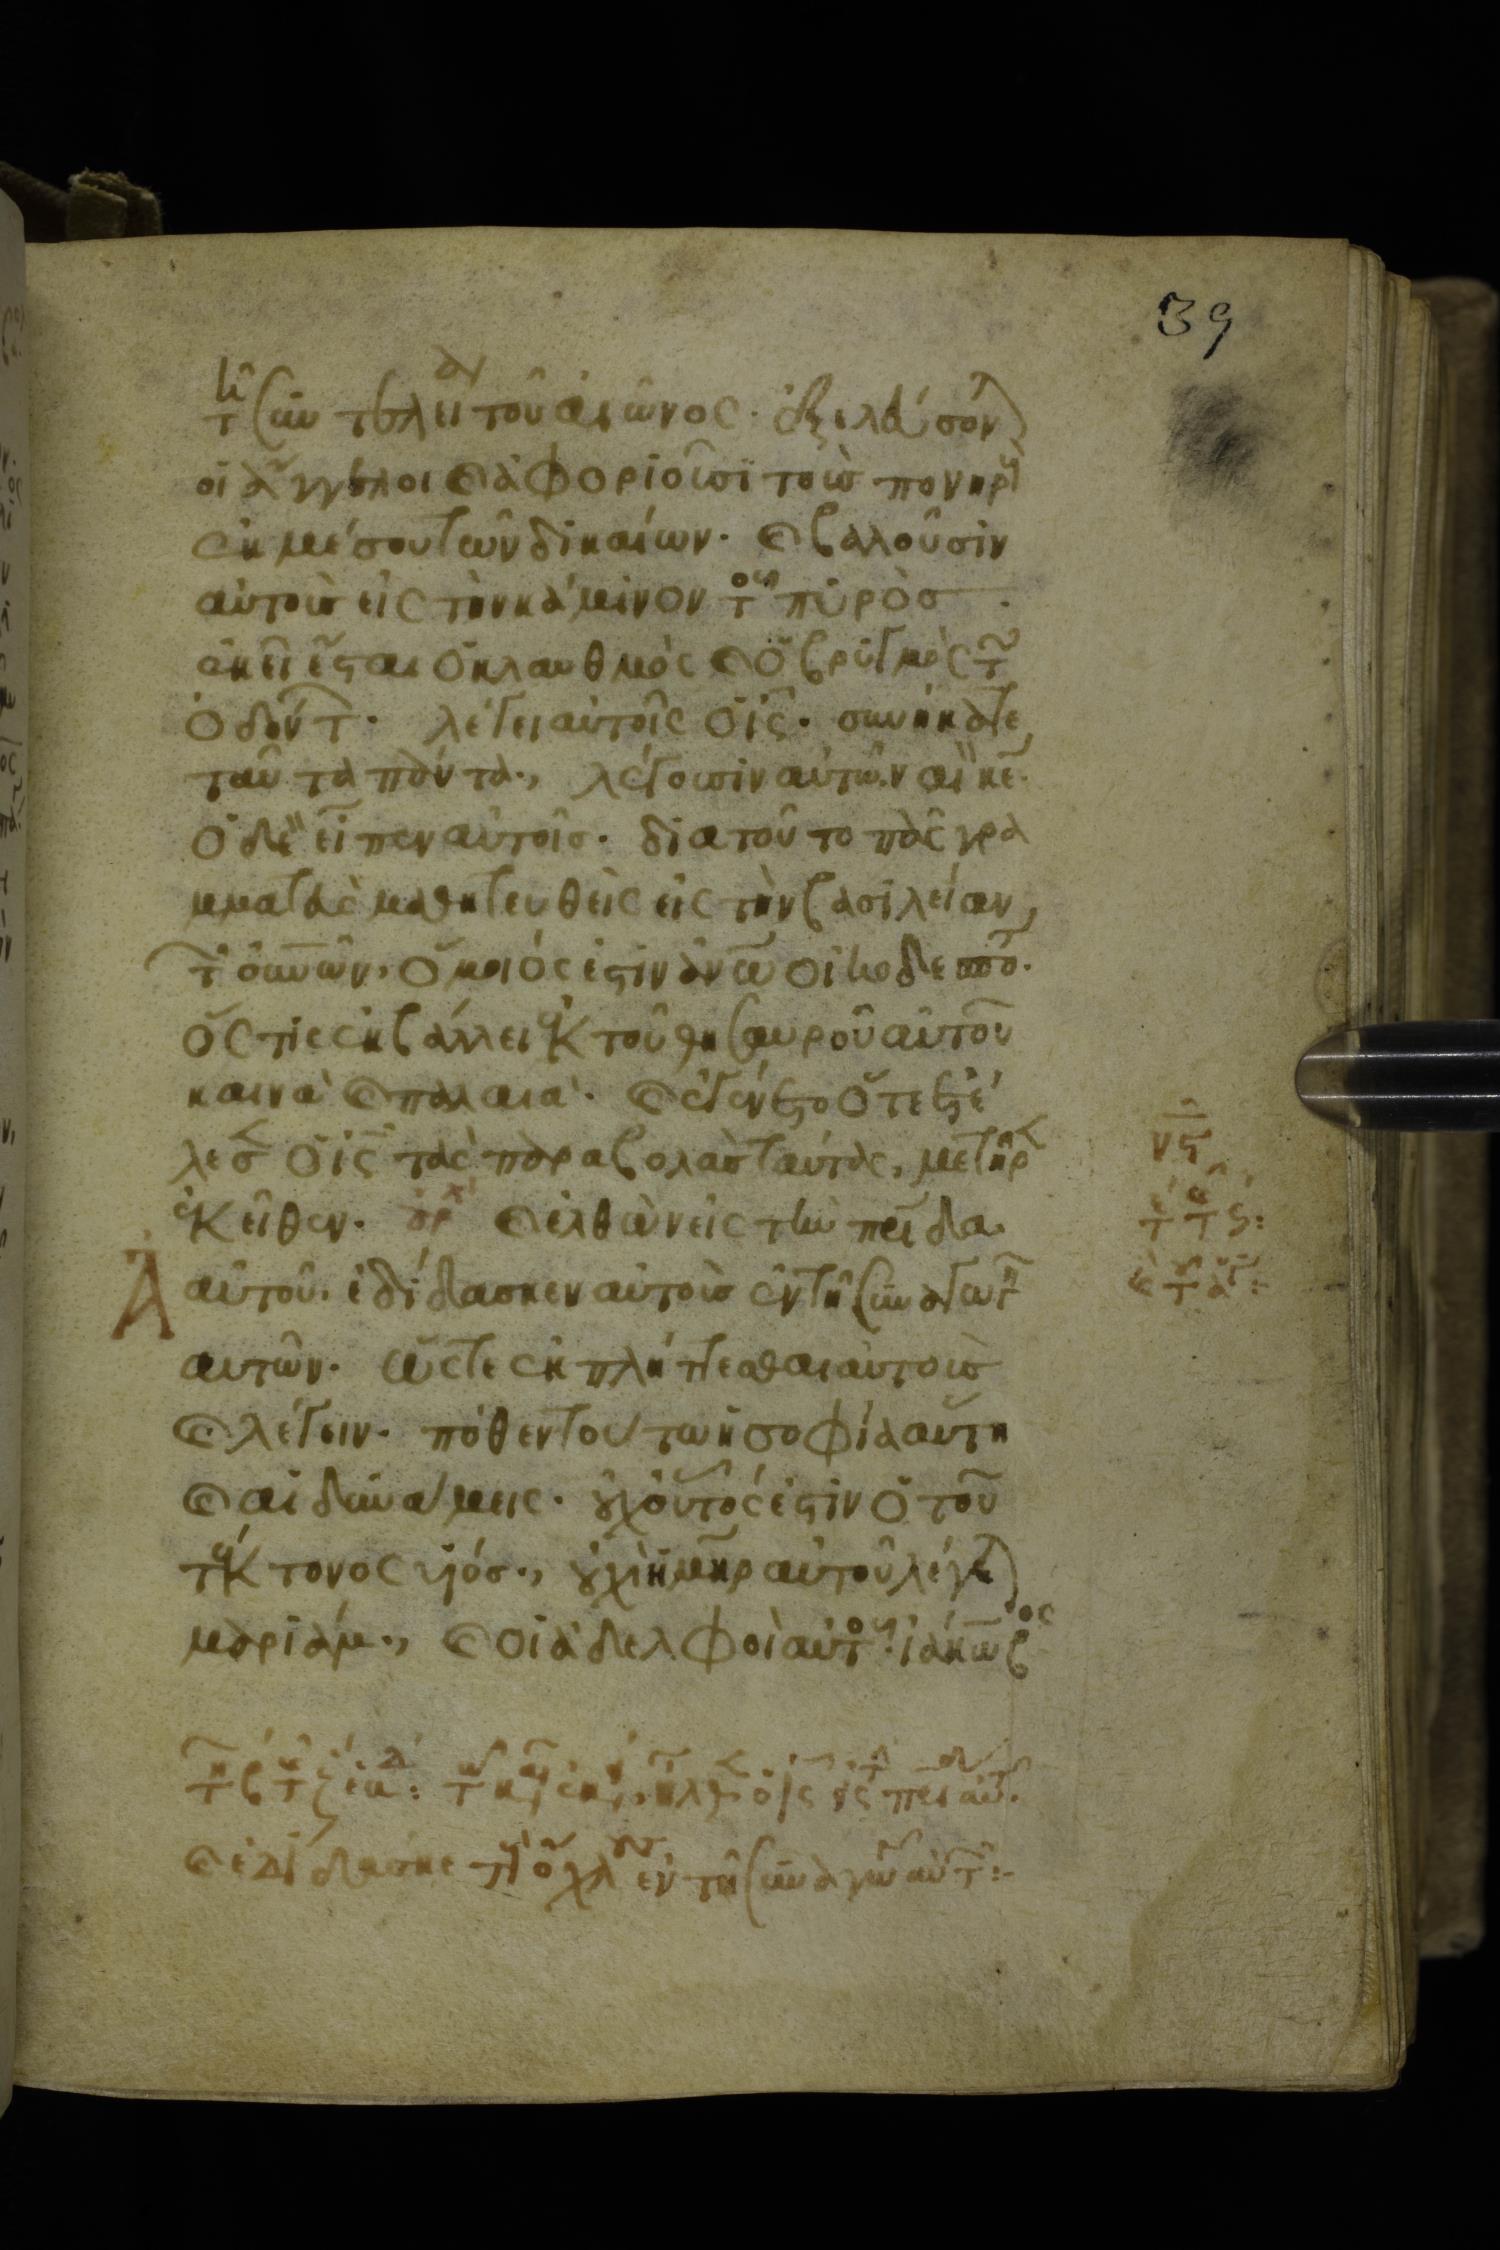 39
τῆ συντελεία τοῦ αἰῶνος. ἐξελεύσονται
οἱ ἄγγελοι καὶ ἀφοριοῦσι τοὺς πονηροὺς
ἐκ μέσου τῶν δικαίων. καὶ βαλοῦσιν
αὐτοὺς εἰς τὴν κάμινον τοῦ πυρὸσ.
ἐκεῖ ἔσται ὁ κλαυθμὸς καὶ ὁ βρυγμὸς τῶν
ὀδόντων. λέγει αὐτοῖς ὁ ις. συνήκατε
ταῦτα πάντα., λέγουσιν αὐτῶ. ναὶ κε.
ὁ δὲ εἶπεν αὐτοῖσ. δια τοῦτο πᾶς γρα
μματεὺς μαθητευθεὶς εἰς τὴν βασιλείαν
τῶν οὐανῶν, ὅμοιός ἐστιν ἀνω οἰκοδεσπότη.
ὅςτις ἐκβάλλει ἐκ τοῦ θησαυροῦ αὐτοῦ
καινὰ καὶ παλαιά. καὶ ἐγένετο ὅτε ἐτέ
λεσεν ὁ ις τὰς παραβολὰς ταύτας, μετῆρεν
ἐκεῖθεν. ἀρχ καὶ ἐλθὼν εἰς τὴν πρίδα
αὐτοῦ, ἐδίδασκεν αὐτοὺς ἐν τῆ συναγωγῆ
αυτῶν. ὥςτε ἐκπλήττεσθαι αὐτοὺς
καὶ λέγειν. πόθεν τούτω ἡ σοφία αὕτη
καὶ αἱ δυνάμεις. οὐχ οὗτός ἐστιν ὁ τοῦ
τέκτονος υἱόσ., οὐχὶ ἡ μηρ αὐτοῦ λέγεται
μαριάμ., καὶ οἱ ἀδελφοὶ αὐτοῦ. ἰάκωβος
καὶ ἐδίδασκε τοὺς ὄχλους ἐν τῆ συναγωγῆ αὐτῶν:-